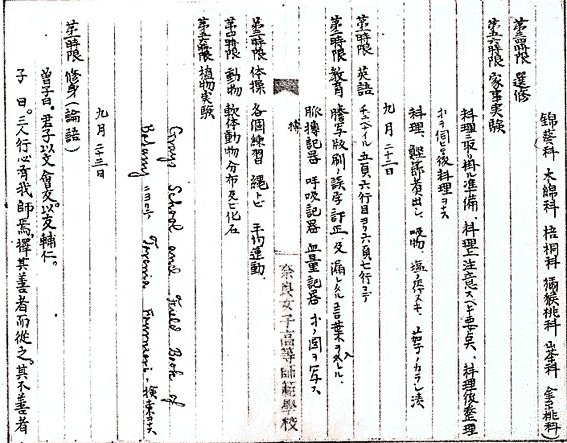 錦葵科 木綿科 梧桐科 獼猴桃科 山茶科 金絲桃科)
第三四時限 選修
第五六時限 家事実験
料理ニ取掛ル準備、料理上注意スベキ要点、料理後整理
ヲ伺ヒ後料理ヲナス
料理、鰹節煮出シ、吸物、塩
九月二十二日
第一時限 英語
五頁六行目ヨリ六頁七行マデ
第二時限 教育
謄写版刷ノ誤字訂正及漏レタル言葉ヲ入レル、
脈搏記器 呼吸記器 血量記器 ノ図ヲ写ス
搏
奈良女子高等師範學校
第三時限 体操 各個練習 縄とび 平均運動、
第四時限 動物 軟体動物分布及ビ化石
第五六時限 植物実験
Grays School and Field Book of
Botany ニヨリテ 検索ヲナス
九月二十三日
第一時限 修身(論語)
曽子曰。君子以文會友。以友輔仁。
子曰。三人行必有我師焉。擇其善者而從之。其不善者